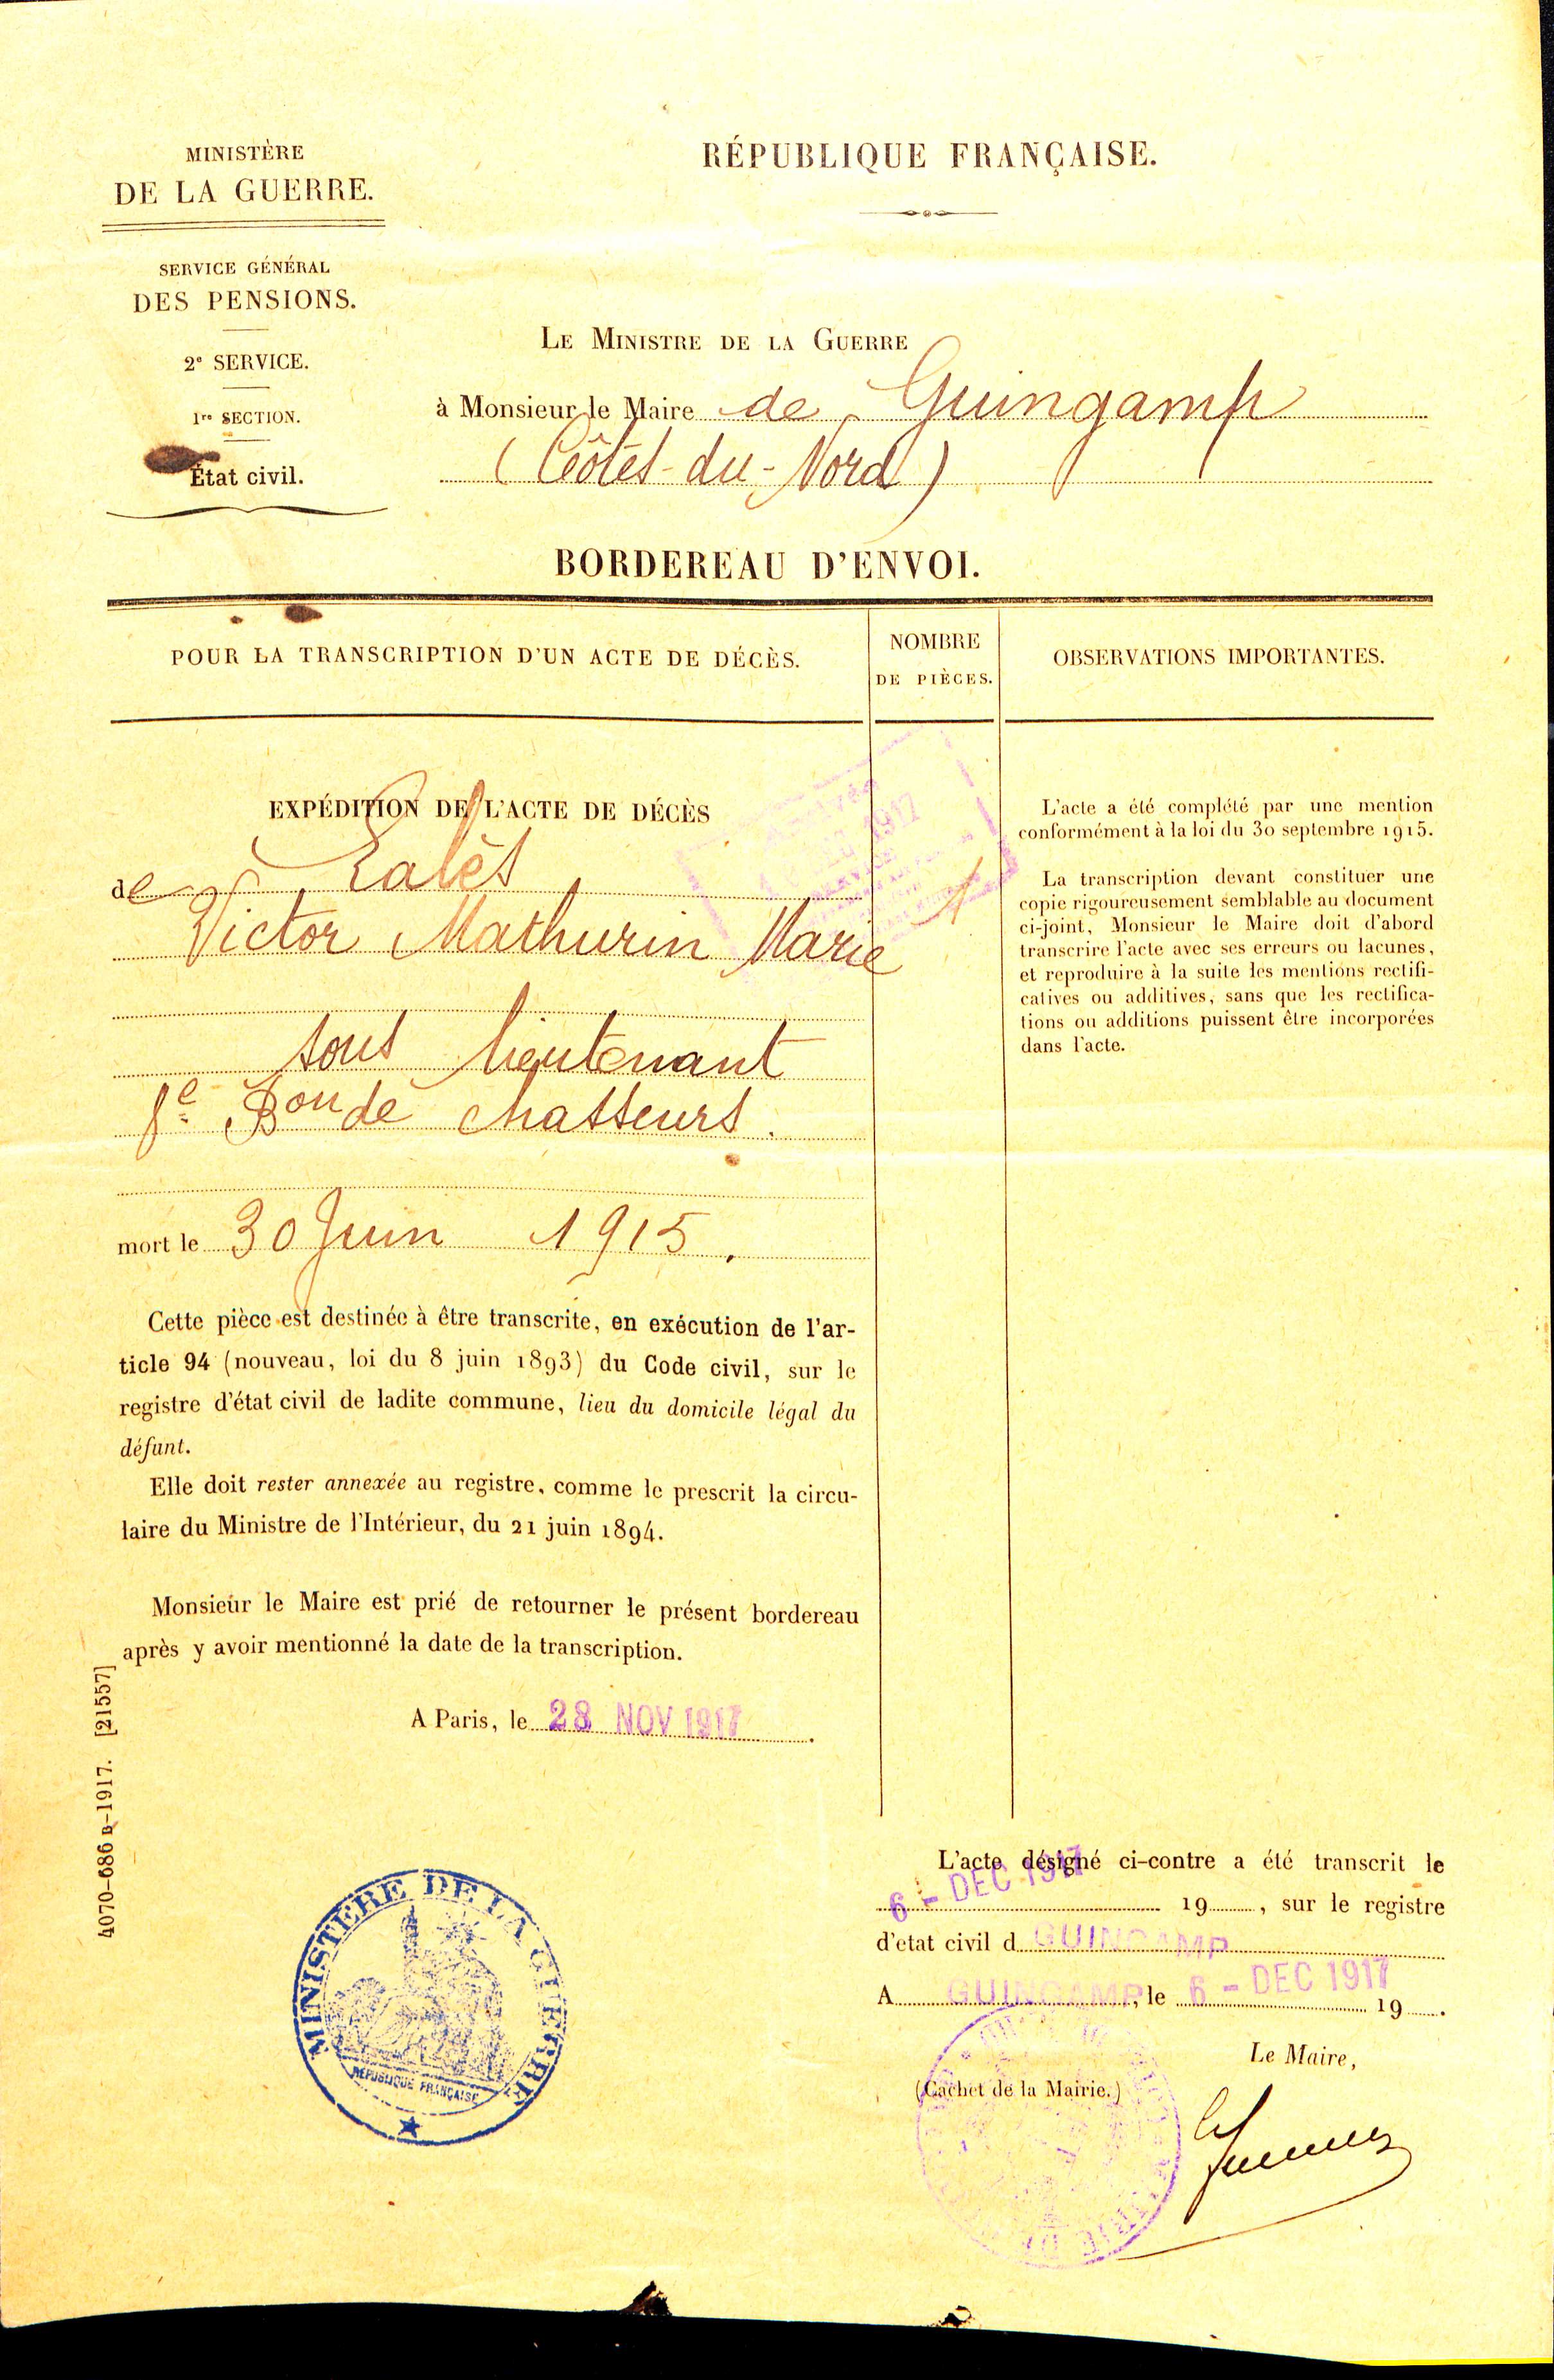 MINISTÈRE
DE LA GUERRE.
SERVICE GÉNÉRAL
DES PENSIONS.
2e SERVICE.
1re SECTION.
État civil.
RÉPUBLIQUE FRANÇAISE.
LE MINISTRE DE LA GUERRE
à Monsieur le Maire de Guingamp
(Côtes-du-Nord)
BORDEREAU D'ENVOI.
POUR LA TRANSCRIPTION D'UN ACTE DE DÉCÈS.
NOMBRE
DE PIÈCES.
OBSERVATIONS IMPORTANTES.
EXPÉDITION DE L'ACTE DE DÉCÈS
de
Victor Mathurin Marie
sous lieutenant
8e Bon de chasseurs.
mort le 30 Juin 1915.
Cette pièce est destinée à être transcrite, en exécution de l'ar-
ticle 94 (nouveau, loi du 8 juin 1893) du Code civil, sur le
registre d'état civil de ladite commune, lieu du domicile légal du
défunt.
Elle doit rester annexée au registre, comme le prescrit la circu-
laire du Ministre de l'Intérieur, du 21 juin 1894.
Monsieur le Maire est prié de retourner le présent bordereau
après y avoir mentionné la date de la transcription.
A Paris, le 28 NOV 1917.
1
L'acte a été complété par une mention
conformément à la loi du 30 septembre 1915.
La transcription devant constituer une
copie rigoureusement semblable au document
ci-joint, Monsieur le Maire doit d'abord
transcrire l'acte avec ses erreurs ou lacunes,
et reproduire à la suite les mentions rectifi-
catives ou additives, sans que les rectifica-
tions ou additions puissent être incorporées
dans l'acte.
4070-686 B-1917. [21557]
MINISTÈRE DE LA GUERRE
RÉPUBLIQUE FRANÇAISE
L'acte désigné ci-contre a été transcrit le
6 - DEC 1917 19 , sur le registre
d'etat civil d GUINGAMP
A GUINGAMP, le 6 - DEC 1917 19 .
Le Maire,
(Cachet de la Mairie.)